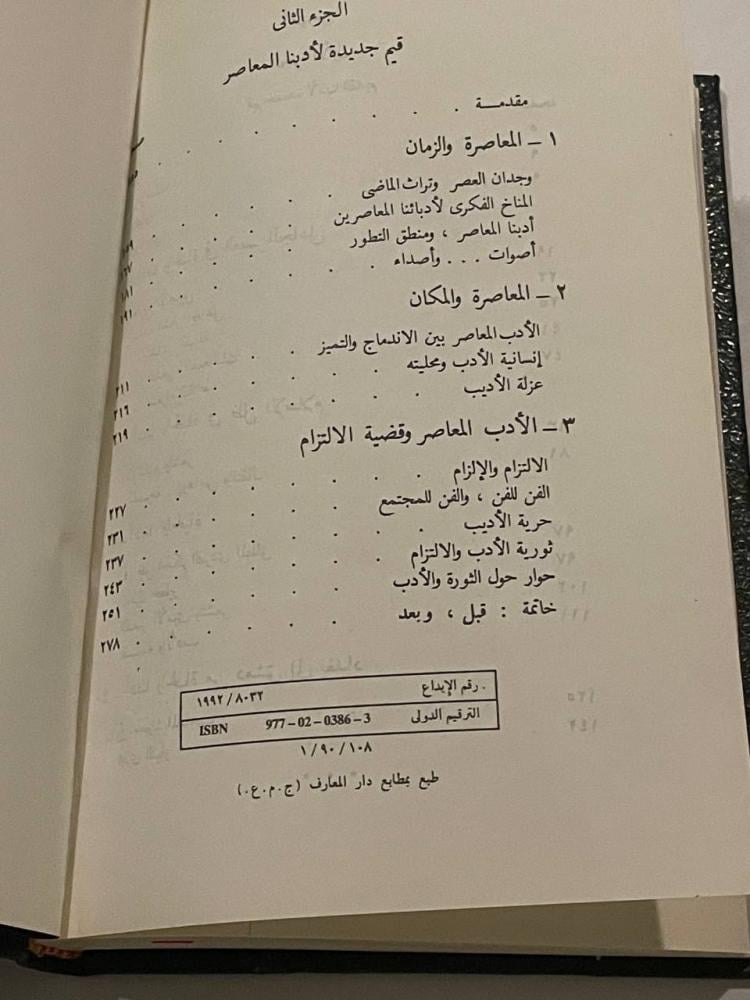 الجزء الثانى
قيم جديدة لأدبنا المعاصر
مقدمــة . . . . . . . .
١ – المعاصرة والزمان
وجدان العصر وتراث الماضى . . . . .
المناخ الفكرى لأدبائنا المعاصرين . . . . ١٦٧
أدبنا المعاصر ، ومنطق التطور . . . . ١٨١
أصوات . . . وأصداء . . . . . . ١٩١
٢ – المعاصرة والمكان
الأدب المعاصر بين الاندماج والتميز . . . . ٢١١
إنسانية الأدب ومحليته . . . . . . ٢١٦
عزلة الأديب . . . . . . . ٢١٩
٣ – الأدب المعاصر وقضية الالتزام
الالتزام والإلزام . . . . . . . ٢٢٧
الفن للفن ، والفن للمجتمع . . . . . ٢٣١
حرية الأديب . . . . . . . ٢٣٧
ثورية الأدب والالتزام . . . . . . ٢٤٣
حوار حول الثورة والأدب . . . . . . ٢٥١
خاتمة : قبل ، وبعد . . . . . . ٢٧٨
رقم الإيداع ١٩٩٢/٨٠٣٢
الترقيم الدولى ISBN 977–02–0386–3
١/٩٠/١٠٨
طبع بمطابع دار المعارف (ج.م.ع.)